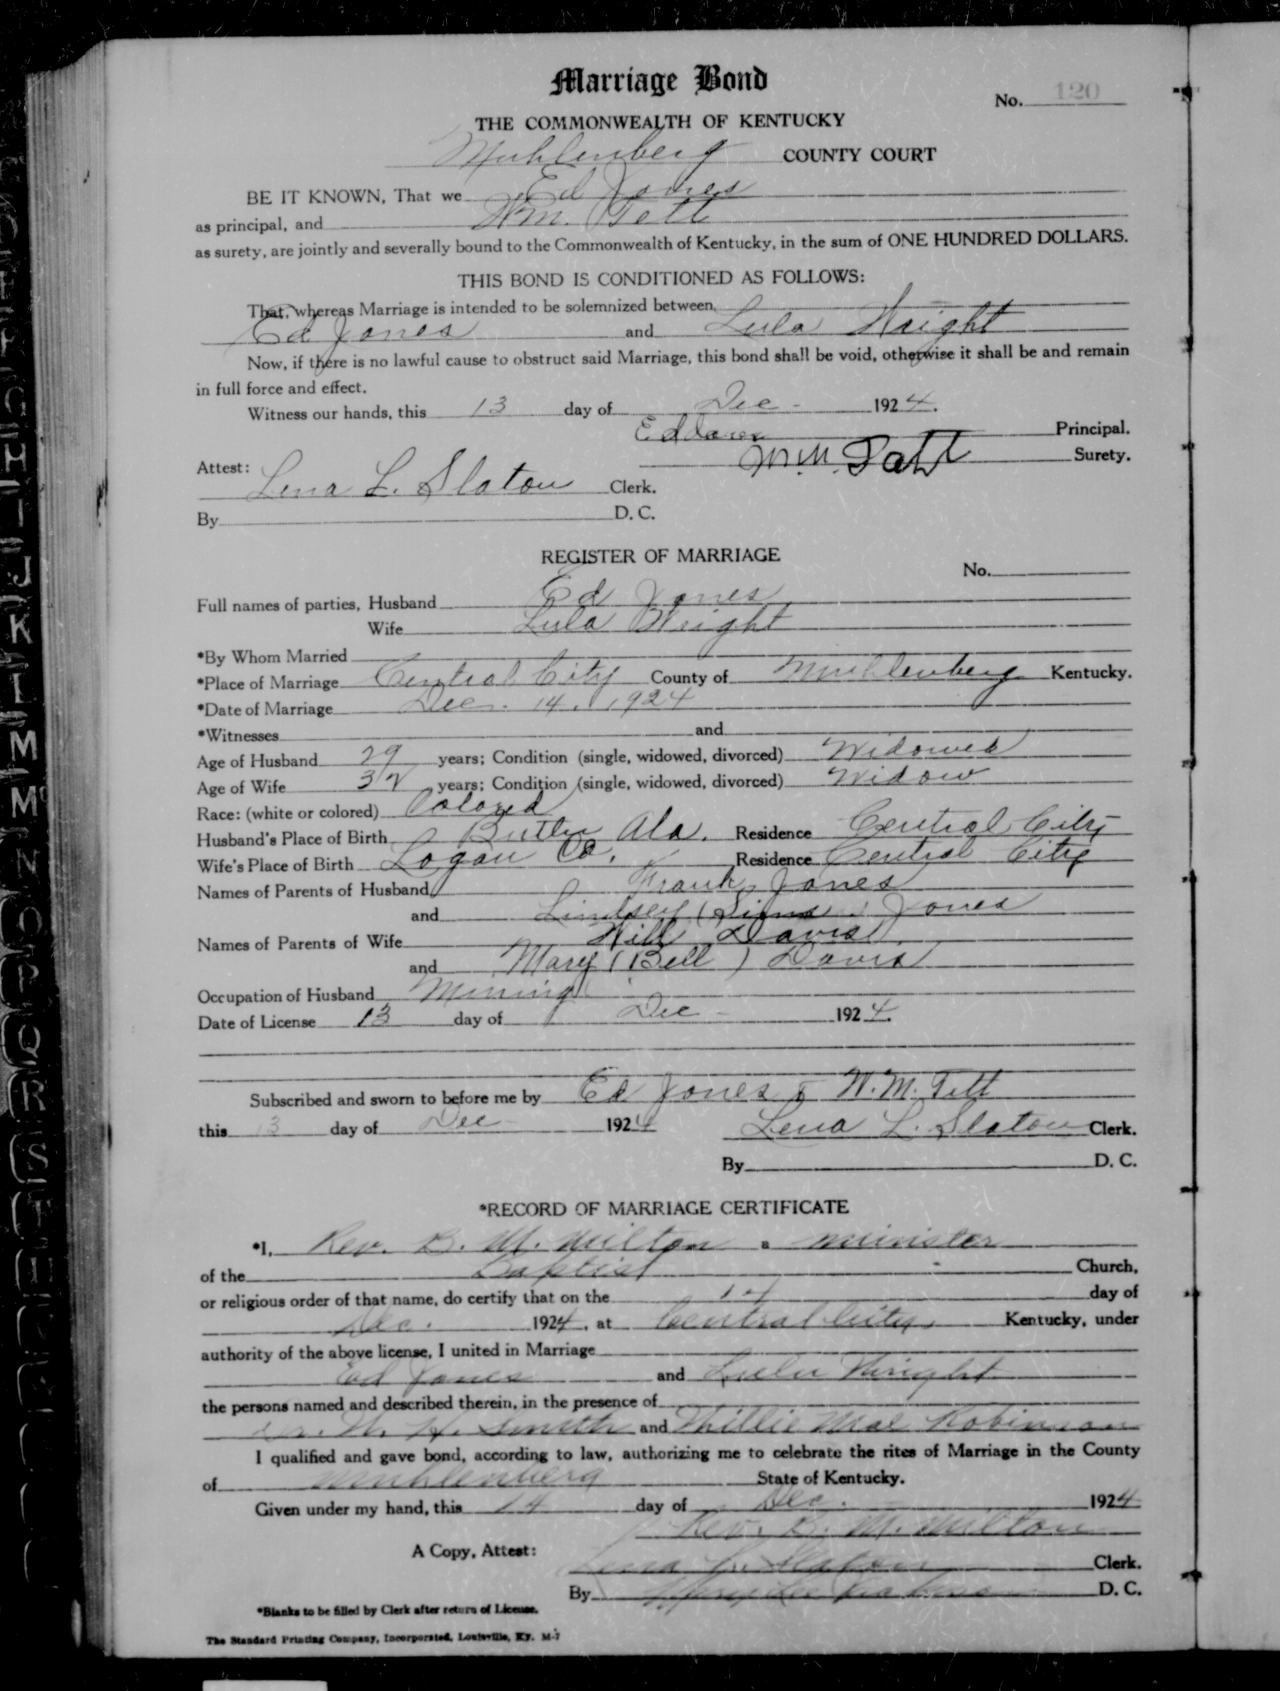 Marriage Bond
No. 120
THE COMMONWEALTH OF KENTUCKY
Muhlenberg COUNTY COURT
BE IT KNOWN, That we Ed Jones
as principal, and Wm. Tett
as surety, are jointly and severally bound to the Commonwealth of Kentucky, in the sum of ONE HUNDRED DOLLARS.
THIS BOND IS CONDITIONED AS FOLLOWS:
That, whereas Marriage is intended to be solemnized between
Ed Jones and Lula Wright
Now, if there is no lawful cause to obstruct said Marriage, this bond shall be void, otherwise it shall be and remain
in full force and effect.
Witness our hands, this 13 day of Dec - 1924.
Ed Principal.
Surety.
Attest:
Lena L. Slaton Clerk.
By D. C.
REGISTER OF MARRIAGE
No.
Full names of parties, Husband Ed Jones
Wife Lula Wright
*By Whom Married
*Place of Marriage Central City County of Muhlenberg Kentucky.
*Date of Marriage Dec. 14, 1924
*Witnesses and
Age of Husband 29 years; Condition (single, widowed, divorced) Widowed
Age of Wife 32 years; Condition (single, widowed, divorced) Widow
Race: (white or colored) Colored
Husband's Place of Birth Butler Ala. Residence Central City
Wife's Place of Birth Logan Co. Residence Central City
Names of Parents of Husband Frank Jones
and Lindsey (Sims) Jones
Names of Parents of Wife Will Davis
and Mary (Bell) Davis
Occupation of Husband Mining
Date of License 13 day of Dec - 1924.
Subscribed and sworn to before me by Ed Jones & W. M. Tett
this 13 day of Dec 1924 Lena L. Slaton Clerk.
By D. C.
*RECORD OF MARRIAGE CERTIFICATE
*I, Rev. B. M. Milton a minister
of the Baptist Church,
or religious order of that name, do certify that on the 14 day of
Dec. 1924, at Central City, Kentucky, under
authority of the above license, I united in Marriage
Ed Jones and Lula Wright
the persons named and described therein, in the presence of
W. H. Smith and Willie Mae Robinson
I qualified and gave bond, according to law, authorizing me to celebrate the rites of Marriage in the County
of Muhlenberg State of Kentucky.
Given under my hand, this 14 day of Dec. 1924
Rev. B. M. Milton
A Copy, Attest:
Lena L. Slaton Clerk.
By D. C.
*Blanks to be filled by Clerk after return of License.
The Standard Printing Company, Incorporated, Louisville, Ky. M-7